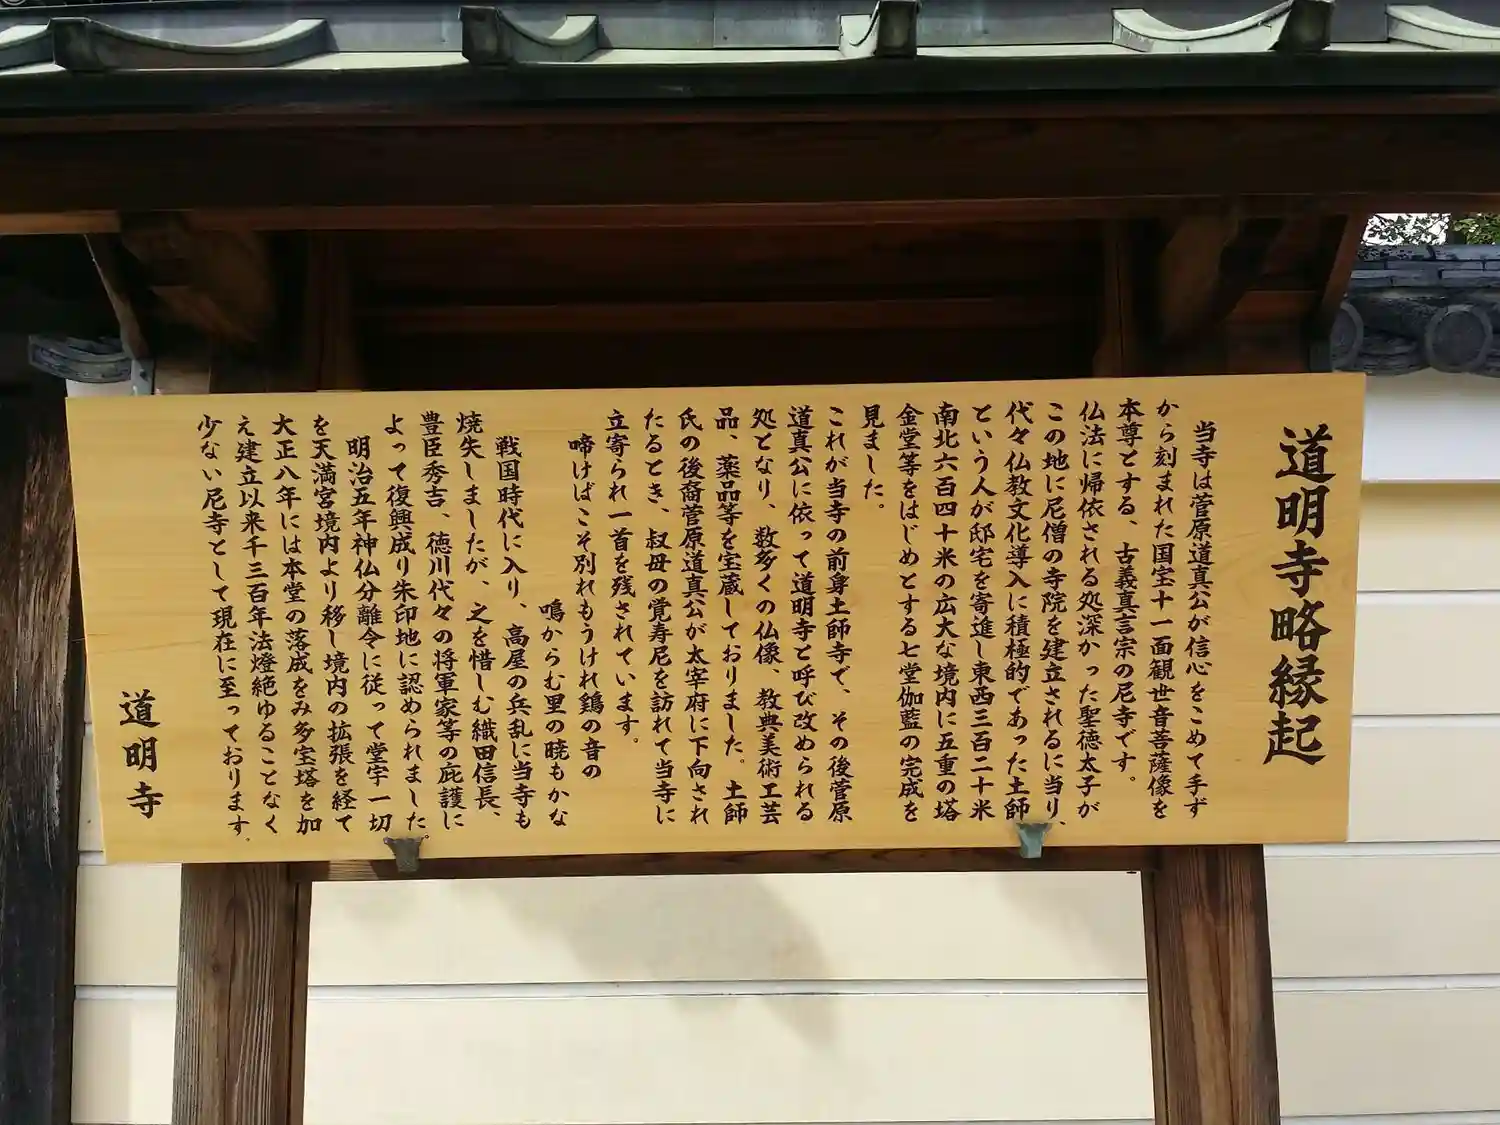 道明寺略縁起
当寺は菅原道真公が信心をこめて手ず
から刻まれた国宝十一面観世音菩薩像を
本尊とする、古義真言宗の尼寺です。
仏法に帰依される処深かった聖徳太子が
この地に尼僧の寺院を建立されるに当り、
代々仏教文化導入に積極的であった土師
という人が邸宅を寄進し東西三百二十米
南北六百四十米の広大な境内に五重の塔
金堂等をはじめとする七堂伽藍の完成を
見ました。
これが当寺の前身土師寺で、その後菅原
道真公に依って道明寺と呼び改められる
処となり、数多くの仏像、教典美術工芸
品、薬品等を宝蔵しておりました。土師
氏の後裔菅原道真公が太宰府に下向され
たるとき、叔母の覚寿尼を訪れて当寺に
立寄られ一首を残されています。
啼けばこそ別れもうけれ鶏の音の
鳴からむ里の暁もかな
戦国時代に入り、高屋の兵乱に当寺も
焼失しましたが、之を惜しむ織田信長、
豊臣秀吉、徳川代々の将軍家等の庇護に
よって復興成り朱印地に認められました。
明治五年神仏分離令に従って堂宇一切
を天満宮境内より移し境内の拡張を経て
大正八年には本堂の落成をみ多宝塔を加
え建立以来千三百年法燈絶ゆることなく
少ない尼寺として現在に至っております.
道明寺